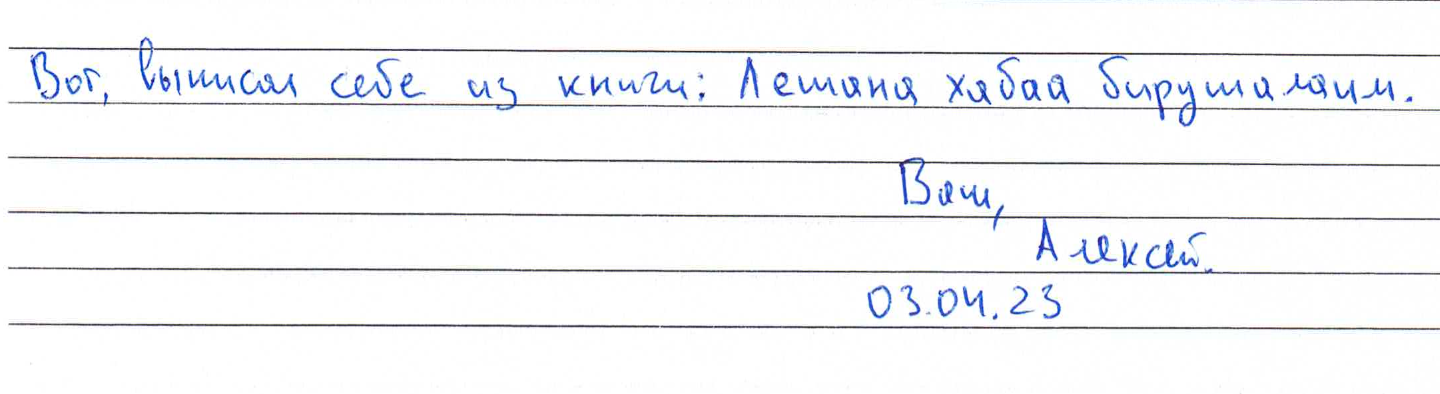 Вот, выписал себе из книги: Лешана хабаа бирушалаим.
Ваш,
Алексей.
03.04.23